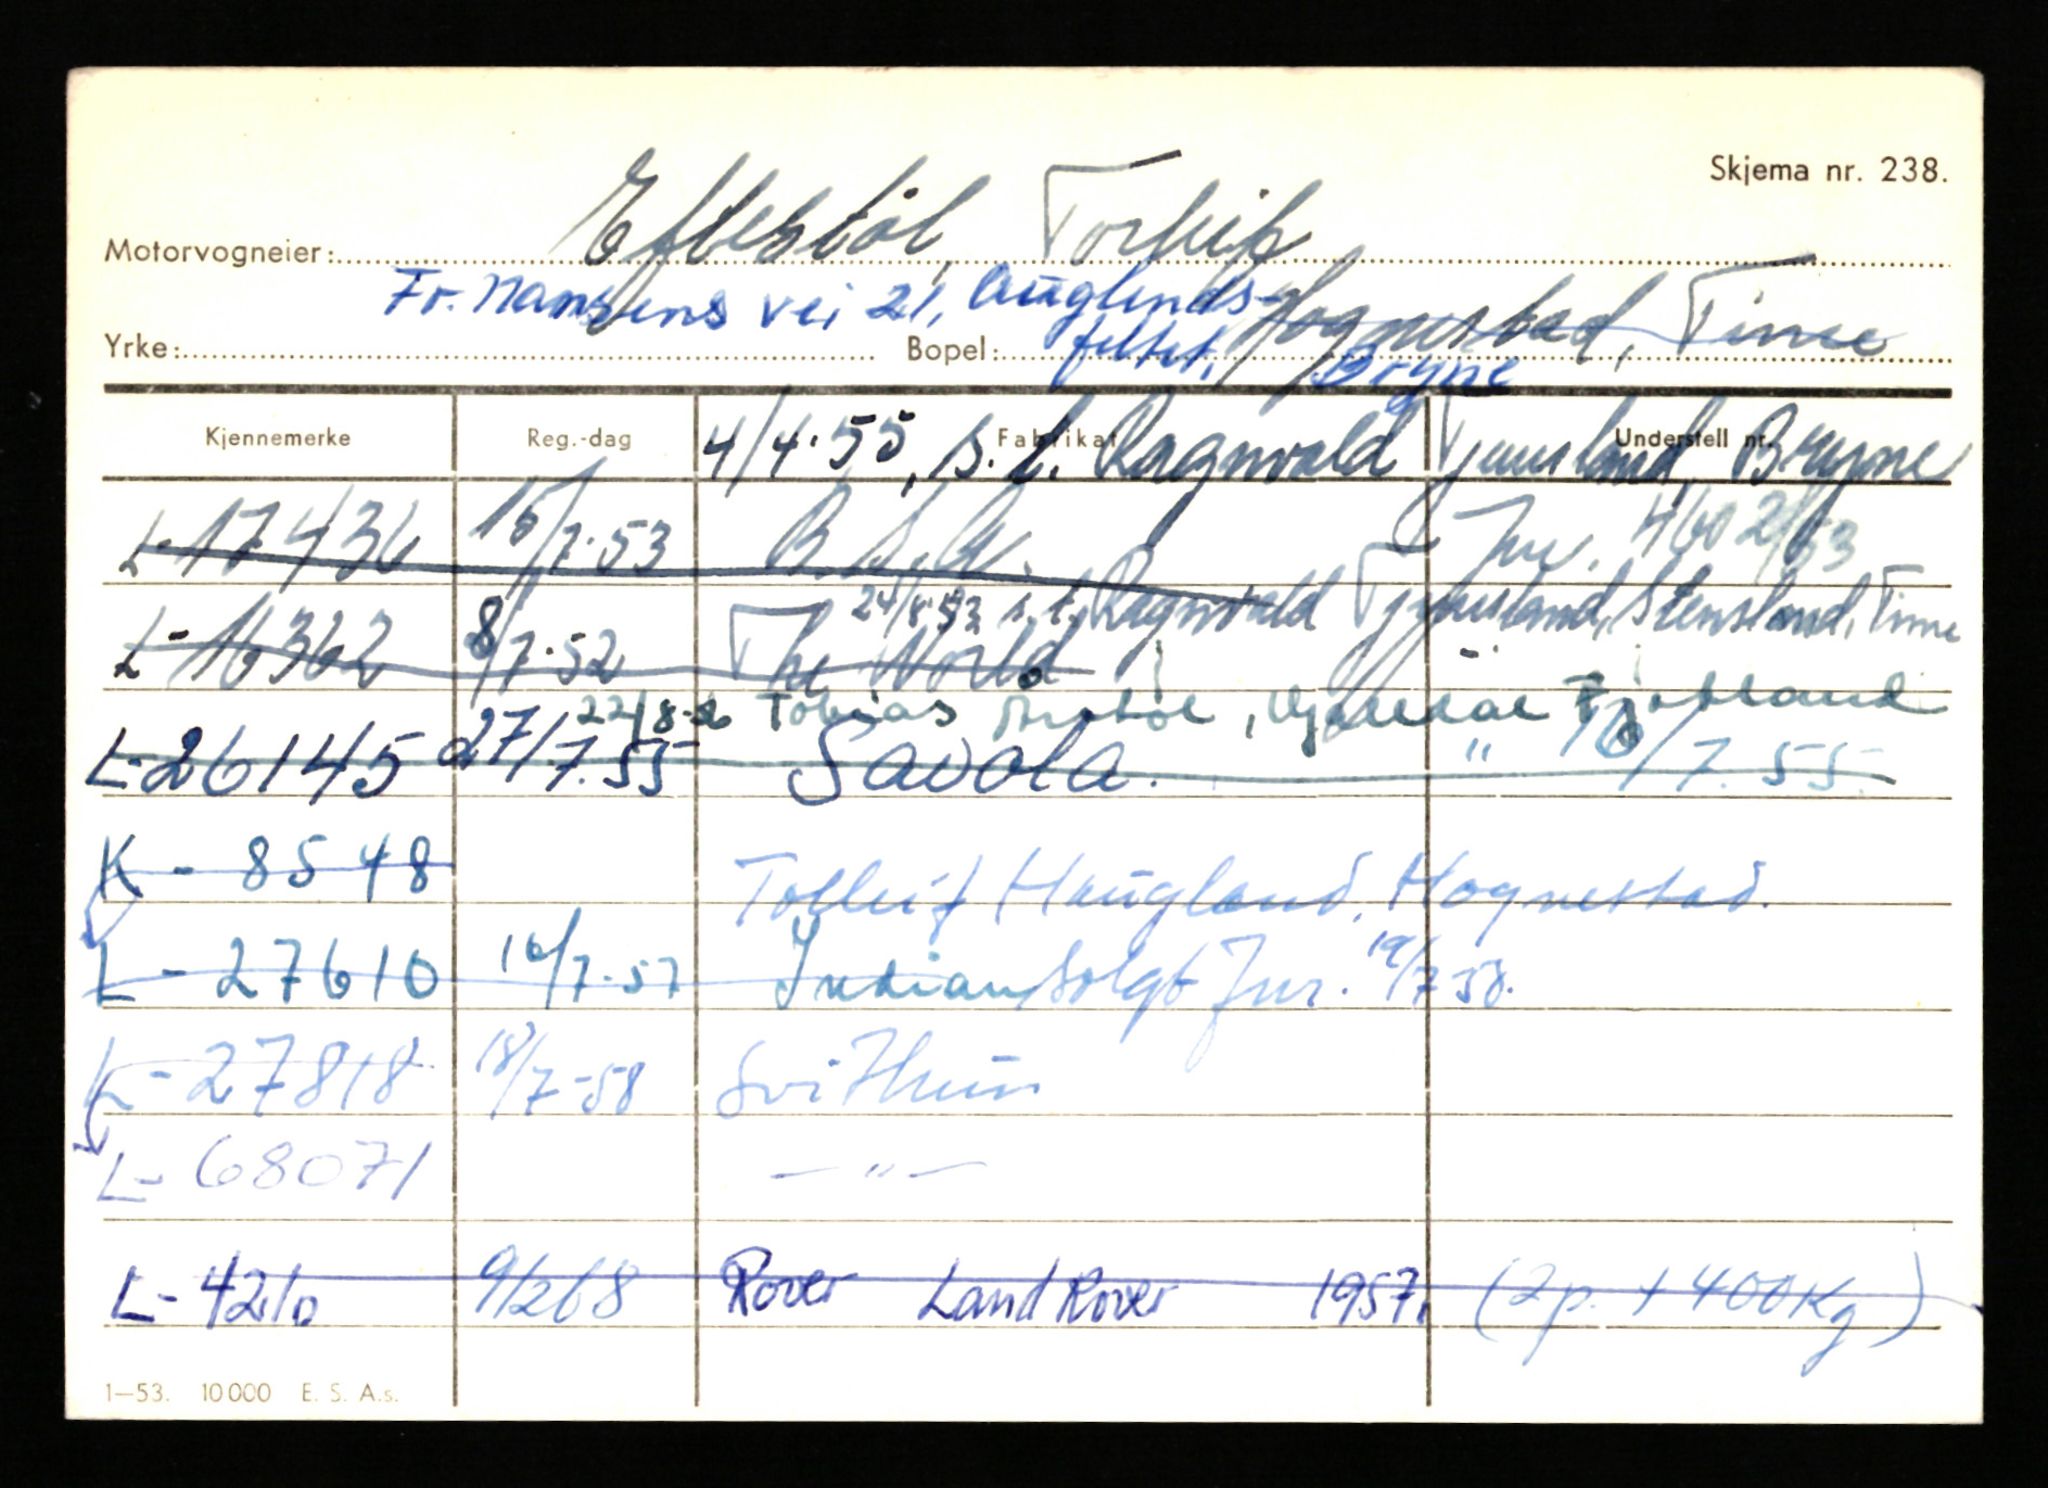 Skjema nr. 238.
Motorvogneier: Eftestöl, Torleif
Fr. Nansens vei 21, Auglends-
Yrke: Bopel: feltet, Hognestad, Time
Bryne
Kjennemerke Reg.-dag Fabrikat Understell nr.
4/4.55, s.t. Ragnvald Tjensland, Bryne
L-17436 15/7.53 B.S.A. Jnr. 460 2/53
24/8.53 s.t. Ragnvald Stensland, Time
L-16362 8/7.52 The World
22/8- Tobias
L-26145 27/7.55 Savola. " 16/7.55.
K - 8548 Tolleif Haugland, Hognestad.
L - 27610 16/7.57 Indian Solgt Jnr. 19/7 58.
K - 27818 18/7-58 Svithun
L - 68071 — " —
L - 4210 9/2 68 Rover Land Rover 1957, (2p. + 400 Kg)
1—53. 10 000 E. S. A.s.